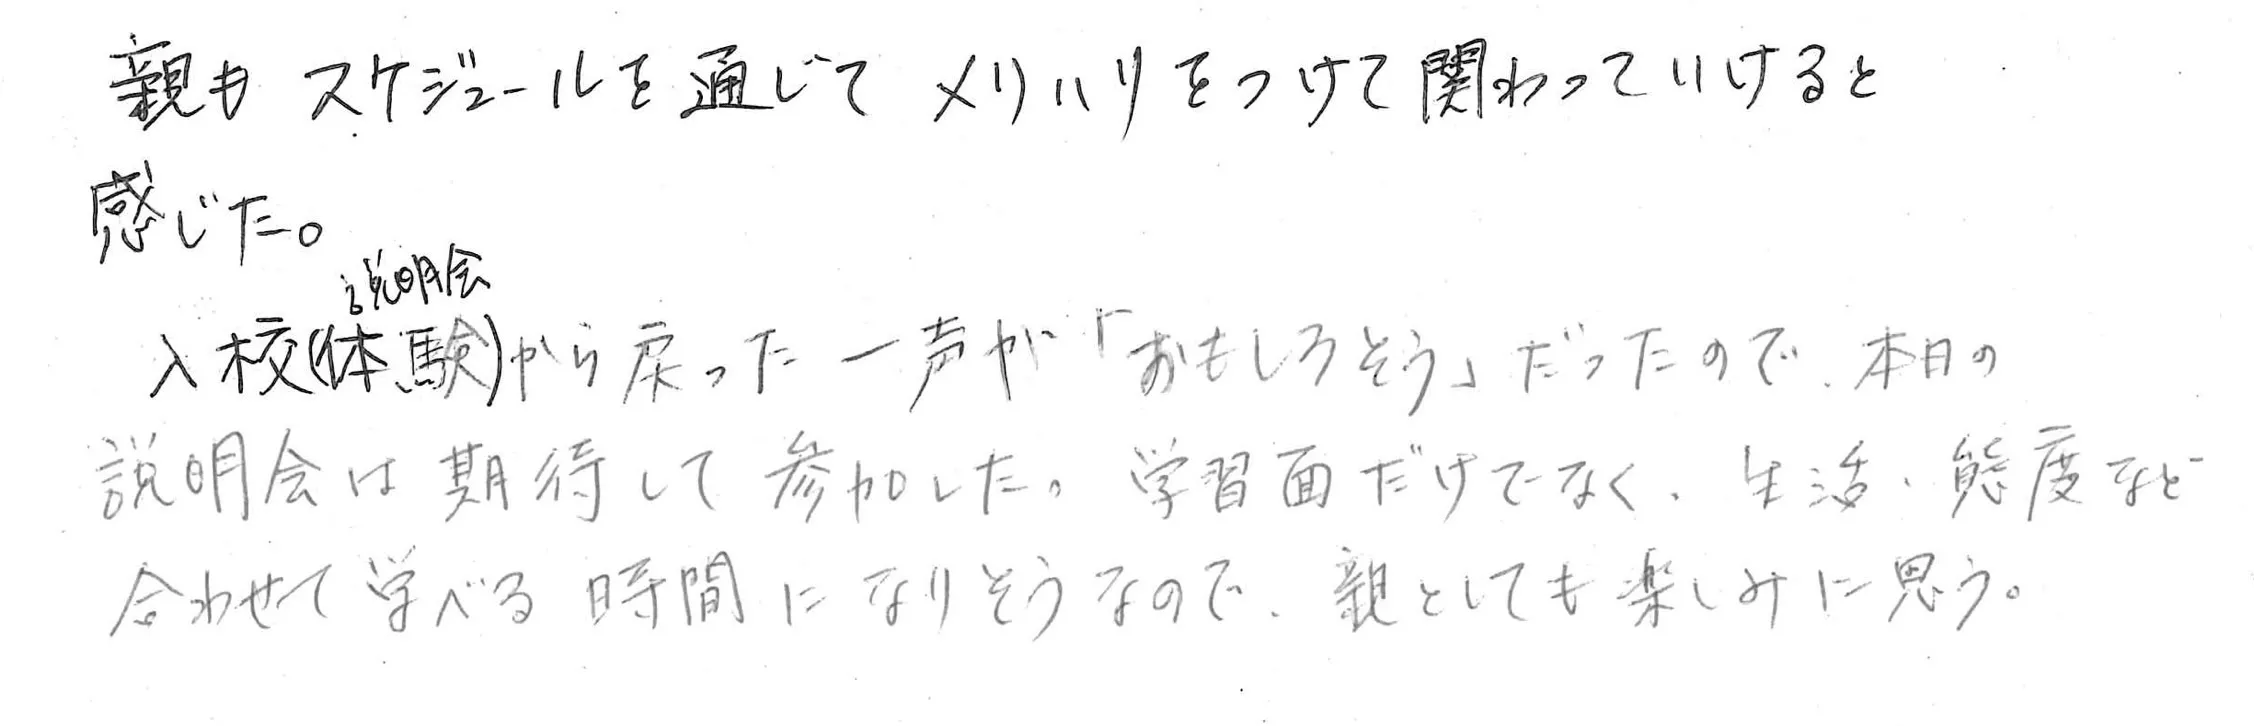 親もスケジュールを通じてメリハリをつけて関わっていけると
感じた。
説明会
入校(体験)から戻った一声が「おもしろそう」だったので、本日の
説明会は期待して参加した。学習面だけでなく、生活・態度など
合わせて学べる時間になりそうなので、親としても楽しみに思う。